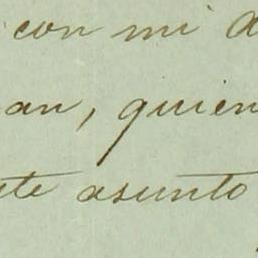 con mi a
an, quien
te asunto